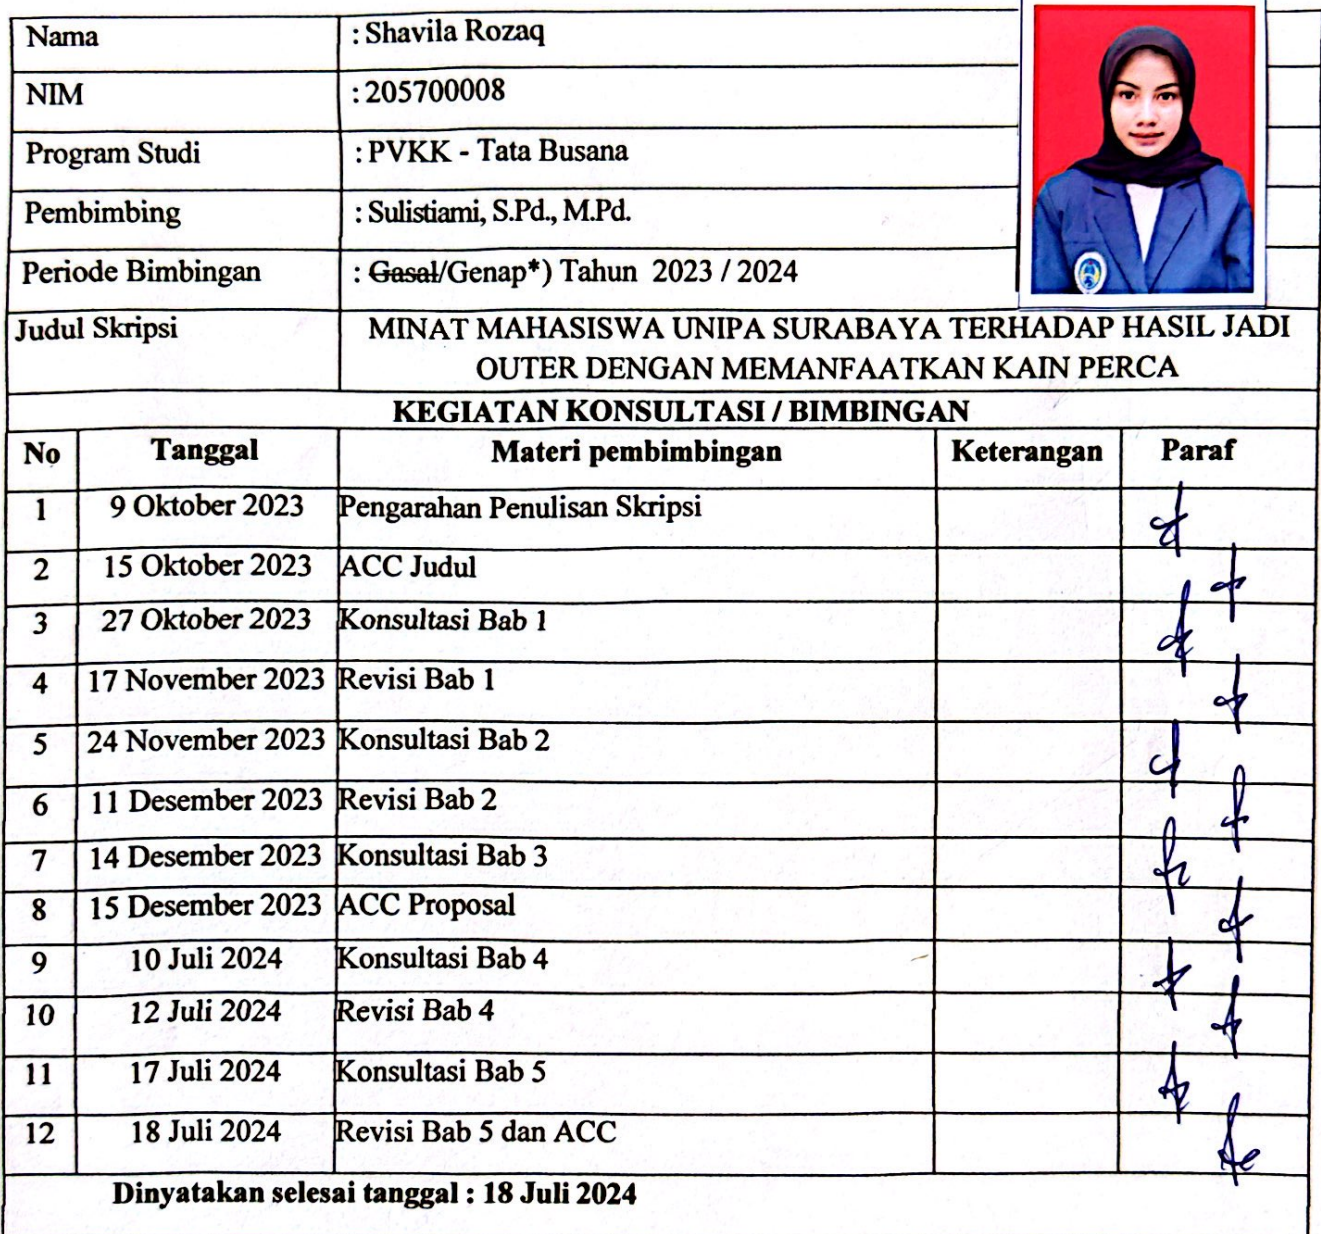 Nama : Shavila Rozaq
NIM : 205700008
Program Studi : PVKK - Tata Busana
Pembimbing : Sulistiami, S.Pd., M.Pd.
Periode Bimbingan : Gasal/Genap*) Tahun 2023 / 2024
Judul Skripsi MINAT MAHASISWA UNIPA SURABAYA TERHADAP HASIL JADI
OUTER DENGAN MEMANFAATKAN KAIN PERCA
KEGIATAN KONSULTASI / BIMBINGAN
No Tanggal Materi pembimbingan Keterangan Paraf
1 9 Oktober 2023 Pengarahan Penulisan Skripsi
2 15 Oktober 2023 ACC Judul
3 27 Oktober 2023 Konsultasi Bab 1
4 17 November 2023 Revisi Bab 1
5 24 November 2023 Konsultasi Bab 2
6 11 Desember 2023 Revisi Bab 2
7 14 Desember 2023 Konsultasi Bab 3
8 15 Desember 2023 ACC Proposal
9 10 Juli 2024 Konsultasi Bab 4
10 12 Juli 2024 Revisi Bab 4
11 17 Juli 2024 Konsultasi Bab 5
12 18 Juli 2024 Revisi Bab 5 dan ACC
Dinyatakan selesai tanggal : 18 Juli 2024